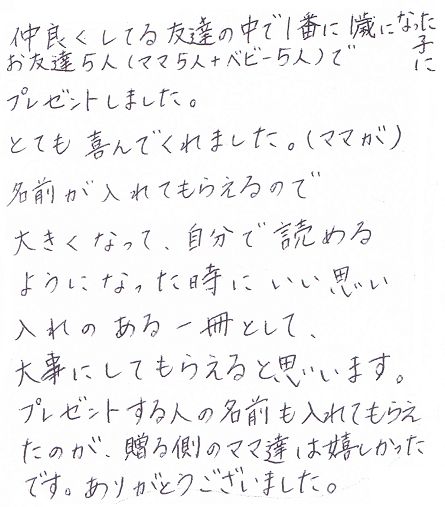 仲良くしてる友達の中で1番に1歳になった子に
お友達5人(ママ5人+ベビー5人)で
プレゼントしました。
とても喜んでくれました。(ママが)
名前が入れてもらえるので
大きくなって、自分で読める
ようになった時にいい思い
入れのある一冊として、
大事にしてもらえると思います。
プレゼントする人の名前も入れてもらえ
たのが、贈る側のママ達は嬉しかった
です。ありがとうございました。